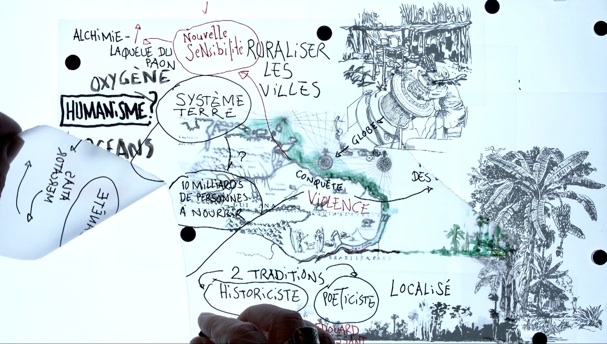 ALCHIMIE-
LAQUELLE DU
PAON
Nouvelle
Sensibilité
RURALISER
LES
VILLES
OXYGÈNE
HUMANISME?
SYSTÈME
TERRE
OCÉANS
GLOBE
?
MERCATOR
ATLAS
10 MILLIARDS
DE PERSONNES
À NOURRIR
CONQUÊTE
VIOLENCE
DES
2 TRADITIONS
HISTORICISTE
POÉTICISTE
LOCALISÉ